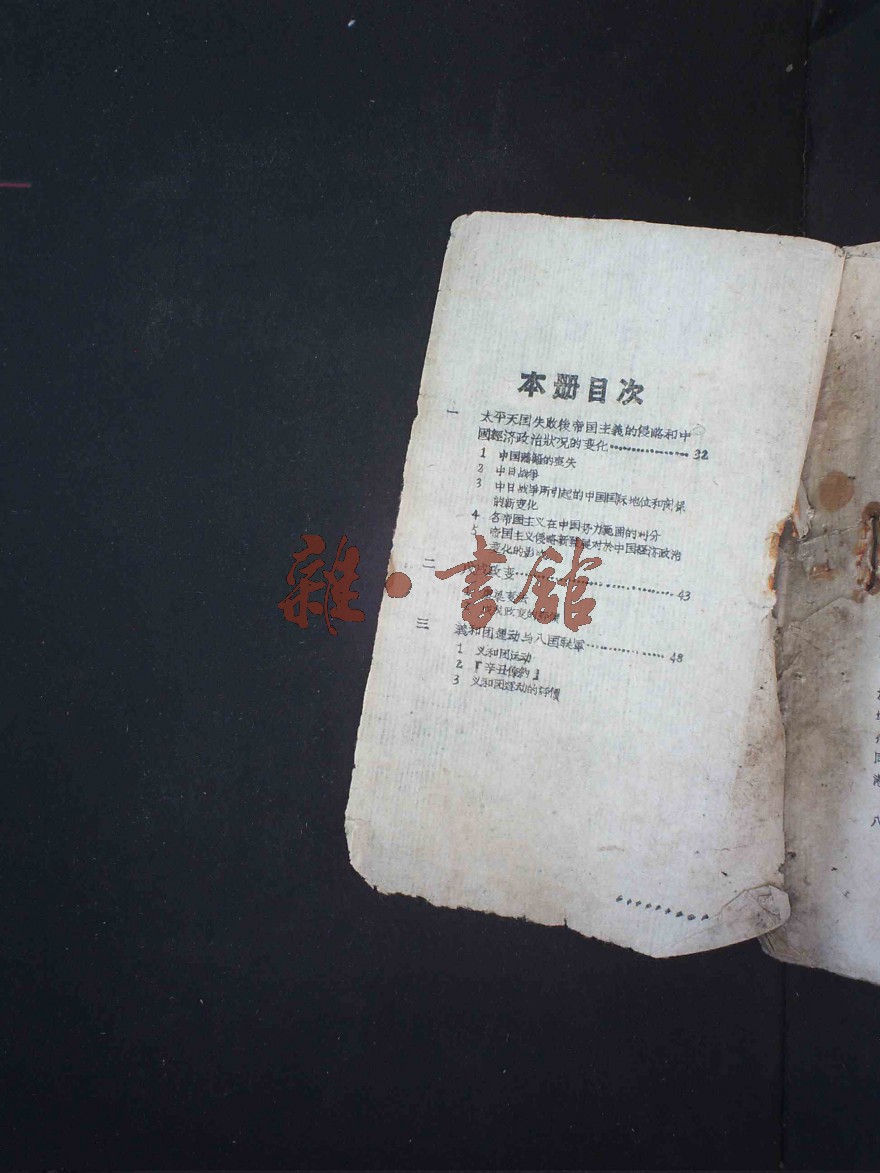 本册目次
一 太平天囯失敗後帝国主義的侵略和中
國經济政治狀况的变化 32
1 中国藩籬的丧失
2 中日战争
3 中日战争所引起的中国国际地位和関係
的新变化
4 各帝国主义在中国势力範圍的划分
5 帝国主义侵略新発展对於中国經济政治
变化的影响
二 戊戌政变 43
三 義和团運动与八国联軍 48
1 义和团运动
2 『辛丑條約』
3 义和团運动的評價
雜·書館